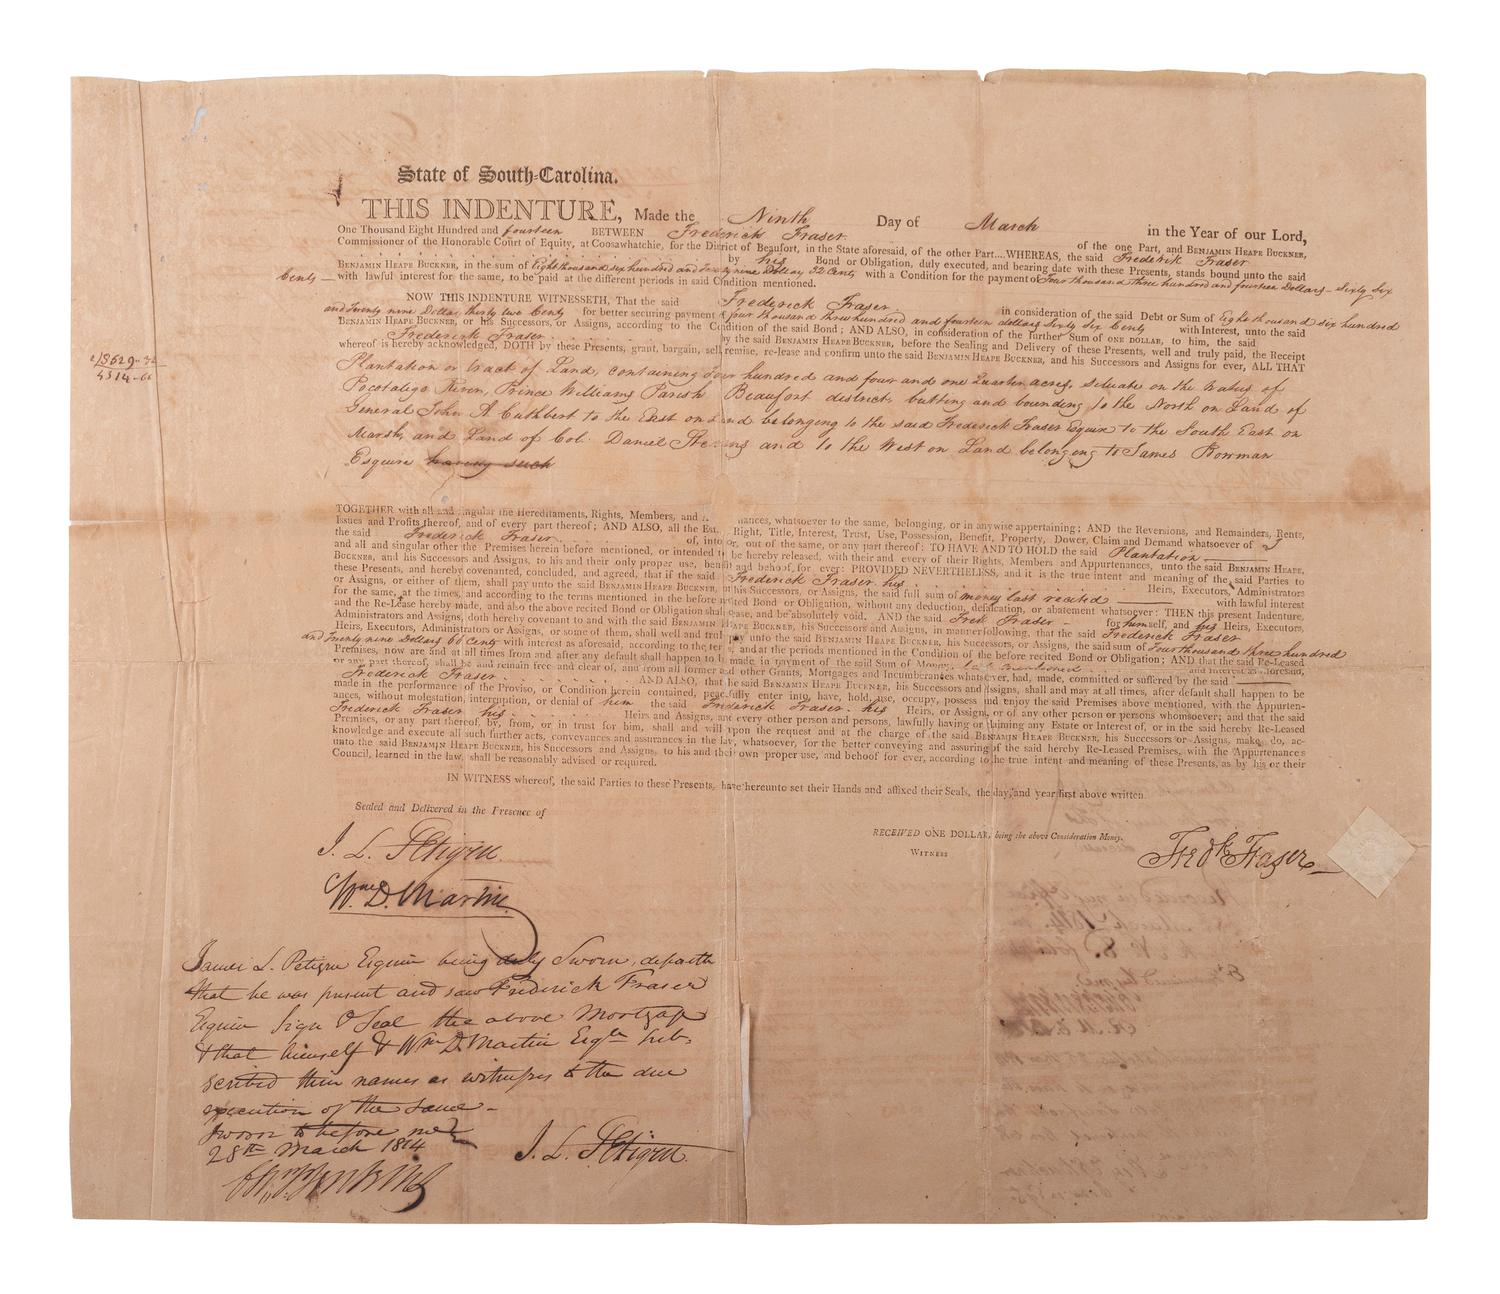 State of South-Carolina.
THIS INDENTURE, Made the Ninth Day of March in the Year of our Lord,
One Thousand Eight Hundred and fourteen BETWEEN Frederick Fraser of the one Part, and BENJAMIN HEAPE BUCKNER,
Commissioner of the Honorable Court of Equity, at Coosawhatchie, for the District of Beaufort, in the State aforesaid, of the other Part....WHEREAS, the said Frederick Fraser
by his Bond or Obligation, duly executed, and bearing date with these Presents, stands bound unto the said
BENJAMIN HEAPE BUCKNER, in the sum of Eight thousand six hundred and Twenty nine Dollars 32 Cents with a Condition for the payment of Four thousand three hundred and fourteen Dollars - Sixty Six
Cents — with lawful interest for the same, to be paid at the different periods in said Condition mentioned.
NOW THIS INDENTURE WITNESSETH, That the said Frederick Fraser in consideration of the said Debt or Sum of Eight thousand six hundred
and Twenty nine Dollars thirty two Cents for better securing payment of four thousand three hundred and fourteen dollars Sixty Six Cents with Interest, unto the said
BENJAMIN HEAPE BUCKNER, or his Successors, or Assigns, according to the Condition of the said Bond; AND ALSO, in consideration of the further Sum of ONE DOLLAR, to him, the said
Frederick Fraser by the said BENJAMIN HEAPE BUCKNER, before the Sealing and Delivery of these Presents, well and truly paid, the Receipt
whereof is hereby acknowledged, DOTH by these Presents, grant, bargain, sell, remise, re-lease and confirm unto the said BENJAMIN HEAPE BUCKNER, and his Successors and Assigns for ever, ALL THAT
8629-32
4314-66
Plantation or tract of Land, containing Four hundred and four and one Quarter acres, situate on the Waters of
Pocotaligo River, Prince Williams Parish Beaufort district, butting and bounding to the North on Land of
General John A Cuthbert to the East on Land belonging to the said Frederick Fraser Esquire to the South East on
Marsh, and Land of Col. Daniel Stevens and to the West on Land belonging to James Bowman
Esquire having such
TOGETHER with all and singular the Hereditaments, Rights, Members, and nances, whatsoever to the same, belonging, or in anywise appertaining; AND the Reversions, and Remainders, Rents,
Issues and Profits thereof, and of every part thereof; AND ALSO, all the Est. Right, Title, Interest, Trust, Use, Possession, Benefit, Property, Dower, Claim and Demand whatsoever of
the said Frederick Fraser of, into or, out of the same, or any part thereof: TO HAVE AND TO HOLD the said Plantation
and all and singular other the Premises herein before mentioned, or intended to be hereby released, with their and every of their Rights, Members and Appurtenances, unto the said BENJAMIN HEAPE
BUCKNER, and his Successors and Assigns, to his and their only proper use, benefit and behoof, for ever: PROVIDED NEVERTHELESS, and it is the true intent and meaning of the said Parties to
these Presents, and hereby covenanted, concluded, and agreed, that if the said Frederick Fraser his Heirs, Executors, Administrators
or Assigns, or either of them, shall pay unto the said BENJAMIN HEAPE BUCKNER, or his Successors, or Assigns, the said full sum of money last recited with lawful interest
for the same, at the times, and according to the terms mentioned in the before recited Bond or Obligation, without any deduction, defalcation, or abatement whatsoever: THEN this present Indenture,
and the Re-Lease hereby made, and also the above recited Bond or Obligation shall cease, and be absolutely void. AND the said Fred Fraser - for himself, and his Heirs, Executors,
Administrators and Assigns, doth hereby covenant to and with the said BENJAMIN HEAPE BUCKNER, his Successors and Assigns, in manner following, that the said Frederick Fraser
Heirs, Executors, Administrators or Assigns, or some of them, shall well and truly pay unto the said BENJAMIN HEAPE BUCKNER, his Successors, or Assigns, the said sum of Four thousand three hundred
and Twenty nine Dollars 66 Cents with interest as aforesaid, according to the ter s, and at the periods mentioned in the Condition of the before recited Bond or Obligation; AND that the said Re-Leased
Premises, now are and at all times from and after any default shall happen to be made, in payment of the said Sum of Money, last mentioned and interest as aforesaid,
or any part thereof, shall be and remain free and clear of, and from all former and other Grants, Mortgages and Incumberances whatsoever, had, made, committed or suffered by the said
Frederick Fraser AND ALSO, that he said BENJAMIN HEAPE BUCKNER, his Successors and Assigns, shall and may at all times, after default shall happen to be
made in the performance of the Proviso, or Condition herein contained, peacefully enter into, have, hold, use, occupy, possess and enjoy the said Premises above mentioned, with the Appurten-
ances, without molestation, interruption, or denial of him the said Frederick Fraser. his Heirs, or Assigns, or of any other person or persons whomsoever; and that the said
Frederick Fraser his Heirs and Assigns, and every other person and persons, lawfully having or claiming any Estate or Interest of, or in the said hereby Re-Leased
Premises, or any part thereof, by, from, or in trust for him, shall and will upon the request and at the charge of the said BENJAMIN HEAPE BUCKNER, his Successors or Assigns, make, do, ac-
knowledge and execute all such further acts, conveyances and assurances in the law, whatsoever, for the better conveying and assuring of the said hereby Re-Leased Premises, with the Appurtenances
unto the said BENJAMIN HEAPE BUCKNER, his Successors and Assigns, to his and their own proper use, and behoof for ever, according to the true intent and meaning of these Presents, as by his or their
Council, learned in the law, shall be reasonably advised or required.
IN WITNESS whereof, the said Parties to these Presents, have hereunto set their Hands and affixed their Seals, the day, and year first above written.
Sealed and Delivered in the Presence of
J. L. Petigru
Wm. D. Martin
RECEIVED ONE DOLLAR, being the above Consideration Money.
WITNESS
Fredk Fraser
James L. Petigru Esquire being duly Sworn, deposeth
that he was present and saw Frederick Fraser
Esquire Sign & Seal the above Mortgage
& that himself & Wm D. Martin Esqr Sub-
scribed their names as witnesses to the due
execution of the same -
Sworn to before me
28th March 1814
J. L. Petigru